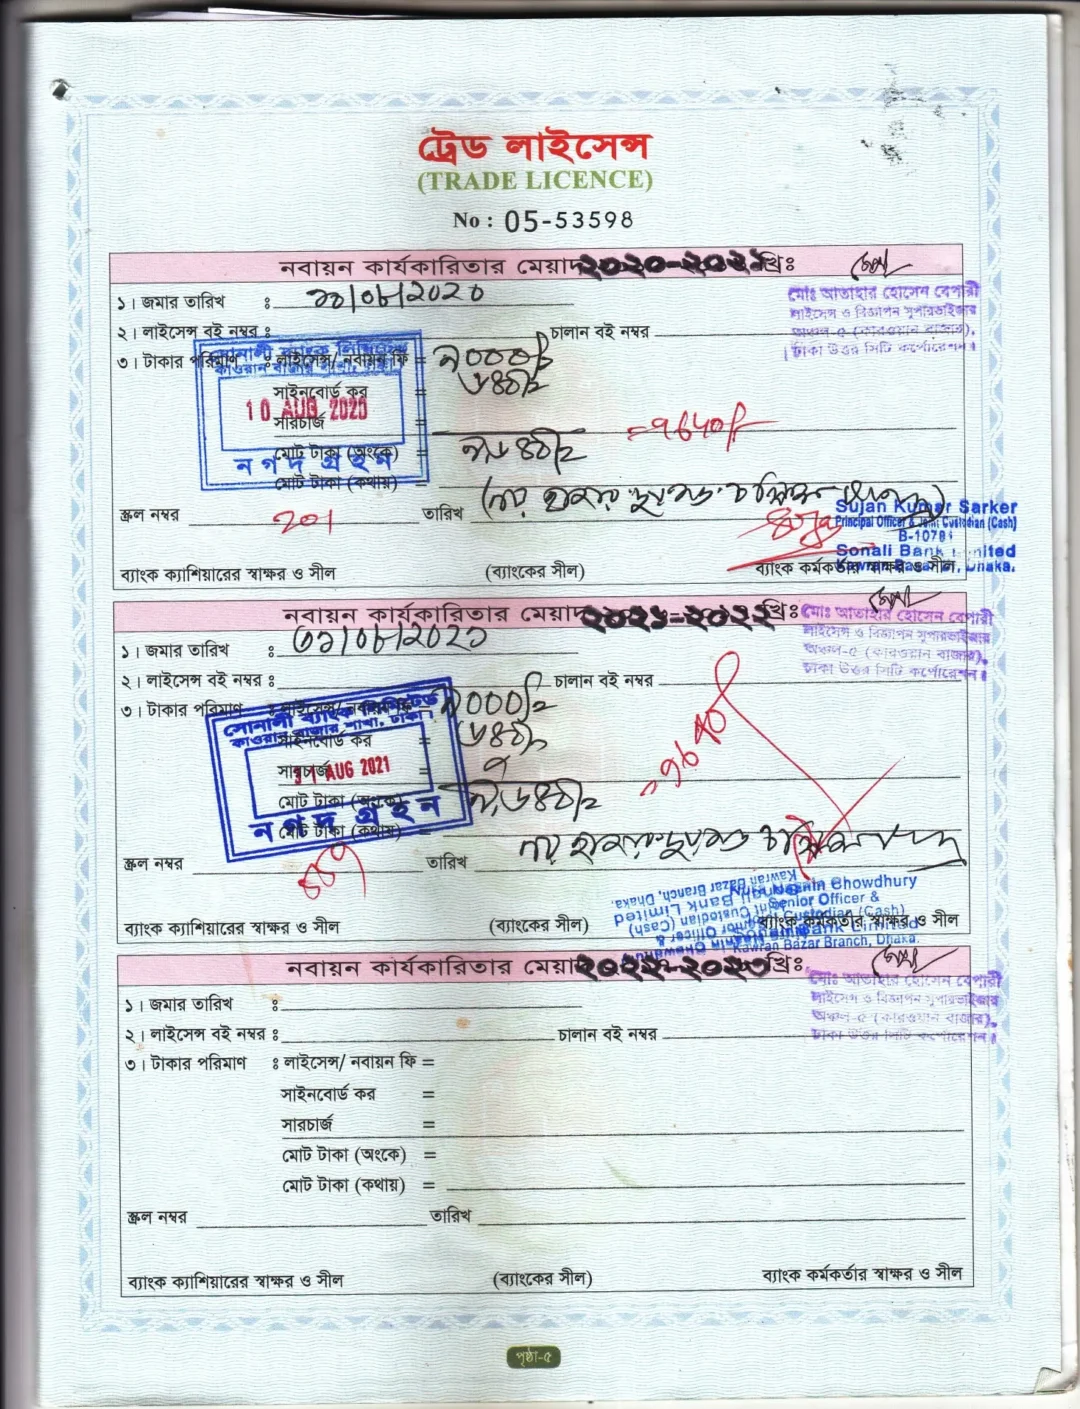 ট্রেড লাইসেন্স
(TRADE LICENCE)
No : 05-53598
নবায়ন কার্যকারিতার মেয়াদ ২০২০-২০২১ খ্রিঃ
মোঃ আতাহার হোসেন বেপারী
লাইসেন্স ও বিজ্ঞাপন সুপারভাইজার
অঞ্চল-৫ (কারওয়ান বাজার),
ঢাকা উত্তর সিটি কর্পোরেশন।
১। জমার তারিখ ঃ ১০/০৮/২০২০
২। লাইসেন্স বই নম্বর ঃ চালান বই নম্বর
৩। টাকার পরিমাণ ঃ লাইসেন্স/ নবায়ন ফি =
সোনালী ব্যাংক লিমিটেড
কাওরান বাজার শাখা, ঢাকা।
সাইনবোর্ড কর
10 AUG 2020
সারচার্জ
=9640/-
মোট টাকা (অংকে) =
নগদ গ্রহন
মোট টাকা (কথায়) =
স্ক্রল নম্বর 201 তারিখ
Sujan Kumar Sarker
Principal Officer & Joint Custodian (Cash)
Sonali Bank Limited
Kawran Bazar Br, Dhaka.
ব্যাংক ক্যাশিয়ারের স্বাক্ষর ও সীল (ব্যাংকের সীল) ব্যাংক কর্মকর্তার স্বাক্ষর ও সীল
নবায়ন কার্যকারিতার মেয়াদ ২০২১-২০২২ খ্রিঃ
মোঃ আতাহার হোসেন বেপারী
লাইসেন্স ও বিজ্ঞাপন সুপারভাইজার
অঞ্চল-৫ (কারওয়ান বাজার),
ঢাকা উত্তর সিটি কর্পোরেশন।
১। জমার তারিখ ঃ ৩১/০৮/২০২১
২। লাইসেন্স বই নম্বর ঃ চালান বই নম্বর
৩। টাকার পরিমাণ ঃ লাইসেন্স/ নবায়ন ফি =
সোনালী ব্যাংক লিমিটেড
কাওরান বাজার শাখা, ঢাকা।
সাইনবোর্ড কর =
সারচার্জ =
31 AUG 2021
মোট টাকা (অংকে)
নগদ গ্রহন
মোট টাকা (কথায়) =
স্ক্রল নম্বর তারিখ
Chowdhury
Senior Officer &
Joint Custodian (Cash)
Sonali Bank Limited
Kawran Bazar Branch, Dhaka.
ব্যাংক ক্যাশিয়ারের স্বাক্ষর ও সীল (ব্যাংকের সীল) ব্যাংক কর্মকর্তার স্বাক্ষর ও সীল
নবায়ন কার্যকারিতার মেয়াদ ২০২২-২০২৩ খ্রিঃ
মোঃ আতাহার হোসেন বেপারী
লাইসেন্স ও বিজ্ঞাপন সুপারভাইজার
অঞ্চল-৫ (কারওয়ান বাজার),
ঢাকা উত্তর সিটি কর্পোরেশন।
১। জমার তারিখ ঃ
২। লাইসেন্স বই নম্বর ঃ চালান বই নম্বর
৩। টাকার পরিমাণ ঃ লাইসেন্স/ নবায়ন ফি =
সাইনবোর্ড কর =
সারচার্জ =
মোট টাকা (অংকে) =
মোট টাকা (কথায়) =
স্ক্রল নম্বর তারিখ
ব্যাংক ক্যাশিয়ারের স্বাক্ষর ও সীল (ব্যাংকের সীল) ব্যাংক কর্মকর্তার স্বাক্ষর ও সীল
পৃষ্ঠা-৫